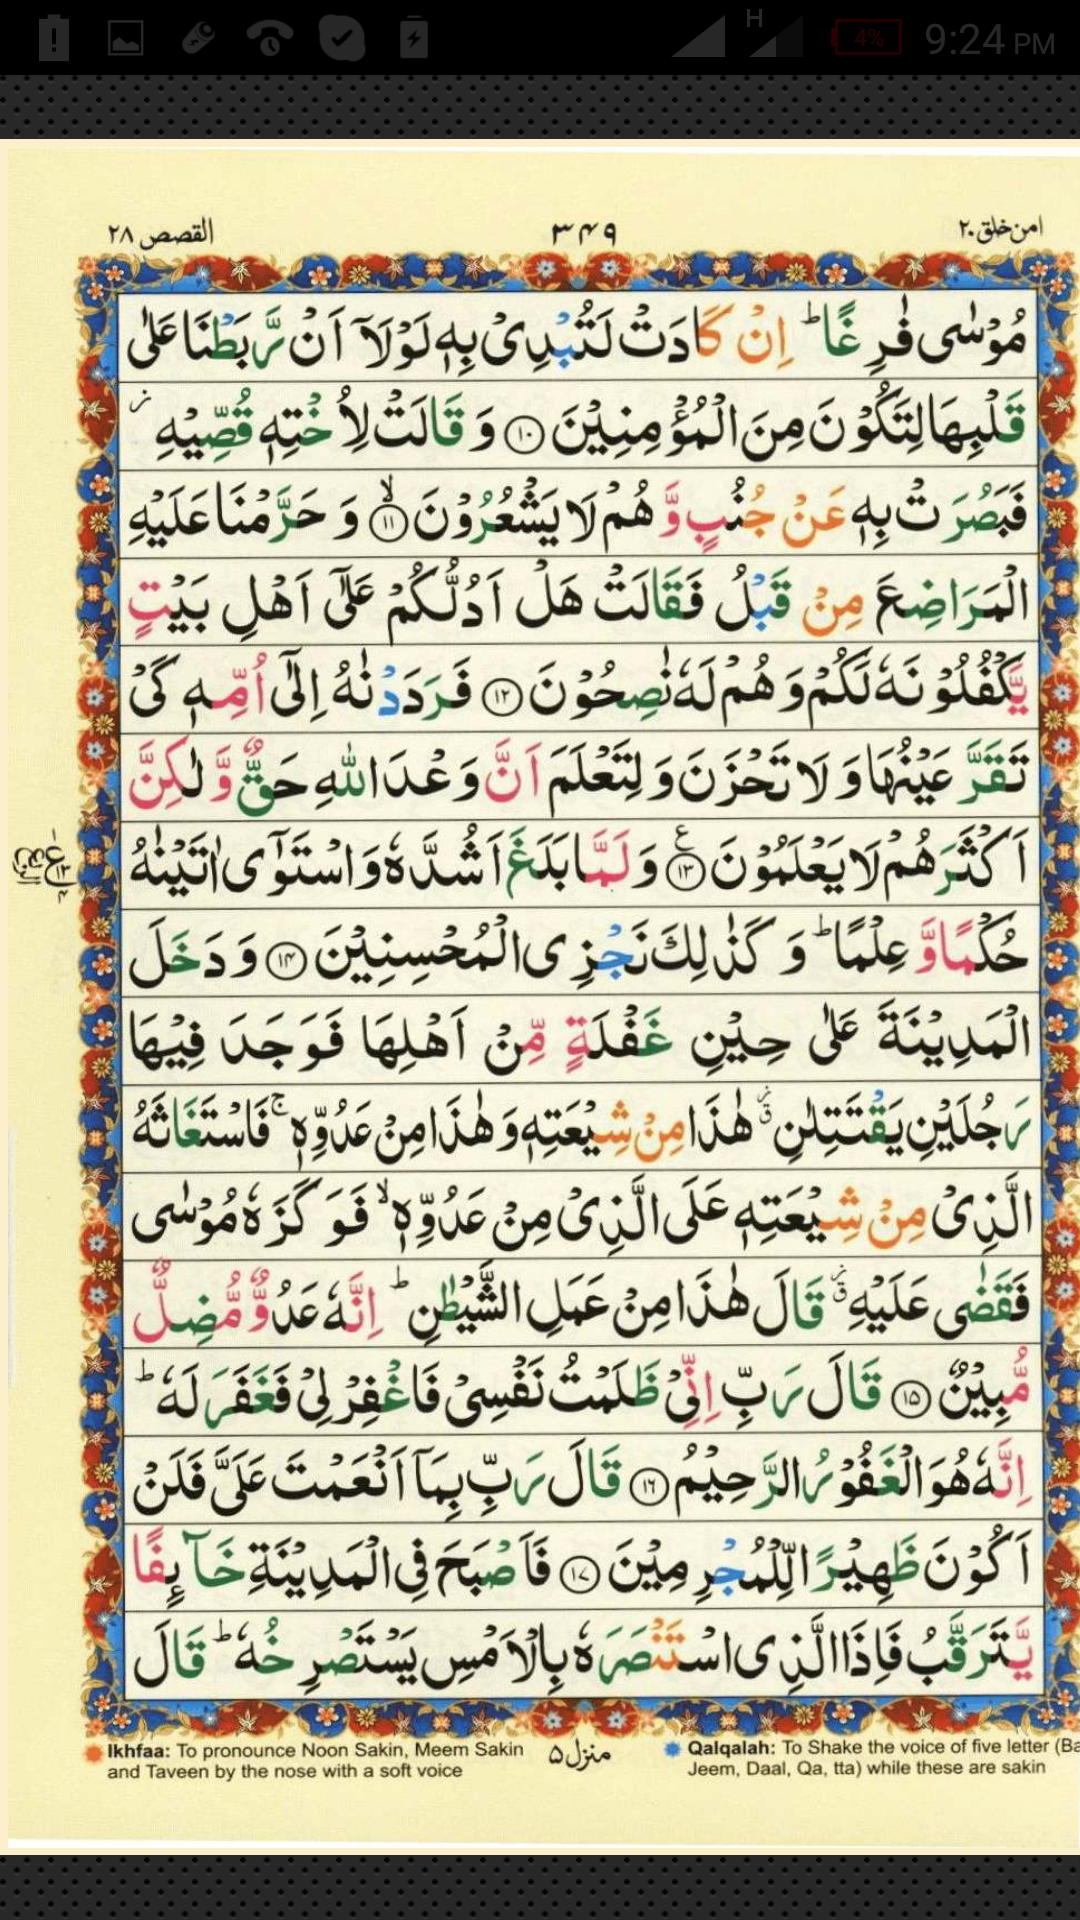 9:24 PM
H
4%
امن خلق ۲۰
۳۴۹
القصص ۲۸
مُوْسٰى فٰرِغًا ؕ اِنْ كَادَتْ لَتُبْدِىْ بِهٖ لَوْلَاۤ اَنْ رَّبَطْنَا عَلٰى
قَلْبِهَا لِتَكُوْنَ مِنَ الْمُؤْمِنِيْنَ ۱۰ وَ قَالَتْ لِاُخْتِهٖ قُصِّيْهِ ز
فَبَصُرَتْ بِهٖ عَنْ جُنُبٍ وَّ هُمْ لَا يَشْعُرُوْنَ ۙ ۱۱ وَ حَرَّمْنَا عَلَيْهِ
الْمَرَاضِعَ مِنْ قَبْلُ فَقَالَتْ هَلْ اَدُلُّكُمْ عَلٰۤى اَهْلِ بَيْتٍ
يَّكْفُلُوْنَهٗ لَكُمْ وَ هُمْ لَهٗ نٰصِحُوْنَ ۱۲ فَرَدَدْنٰهُ اِلٰۤى اُمِّهٖ كَىْ
تَقَرَّ عَيْنُهَا وَ لَا تَحْزَنَ وَ لِتَعْلَمَ اَنَّ وَعْدَ اللّٰهِ حَقٌّ وَّ لٰكِنَّ
اَكْثَرَهُمْ لَا يَعْلَمُوْنَ ع ۱۳ وَ لَمَّا بَلَغَ اَشُدَّهٗ وَ اسْتَوٰۤى اٰتَيْنٰهُ
حُكْمًا وَّ عِلْمًا ؕ وَ كَذٰلِكَ نَجْزِى الْمُحْسِنِيْنَ ۱۴ وَ دَخَلَ
الْمَدِيْنَةَ عَلٰى حِيْنِ غَفْلَةٍ مِّنْ اَهْلِهَا فَوَجَدَ فِيْهَا
رَجُلَيْنِ يَقْتَتِلٰنِ ز ق هٰذَا مِنْ شِيْعَتِهٖ وَ هٰذَا مِنْ عَدُوِّهٖ ۚ فَاسْتَغَاثَهُ
الَّذِىْ مِنْ شِيْعَتِهٖ عَلَى الَّذِىْ مِنْ عَدُوِّهٖ ۙ فَوَكَزَهٗ مُوْسٰى
فَقَضٰى عَلَيْهِ ز ق قَالَ هٰذَا مِنْ عَمَلِ الشَّيْطٰنِ ؕ اِنَّهٗ عَدُوٌّ مُّضِلٌّ
مُّبِيْنٌ ۱۵ قَالَ رَبِّ اِنِّىْ ظَلَمْتُ نَفْسِىْ فَاغْفِرْ لِىْ فَغَفَرَ لَهٗ ؕ
اِنَّهٗ هُوَ الْغَفُوْرُ الرَّحِيْمُ ۱۶ قَالَ رَبِّ بِمَاۤ اَنْعَمْتَ عَلَىَّ فَلَنْ
اَكُوْنَ ظَهِيْرًا لِّلْمُجْرِمِيْنَ ۱۷ فَاَصْبَحَ فِى الْمَدِيْنَةِ خَآئِفًا
يَّتَرَقَّبُ فَاِذَا الَّذِى اسْتَنْصَرَهٗ بِالْاَمْسِ يَسْتَصْرِخُهٗ ؕ قَالَ
Ikhfaa: To pronounce Noon Sakin, Meem Sakin
and Taveen by the nose with a soft voice
منزل ۵
Qalqalah: To Shake the voice of five letter (Ba
Jeem, Daal, Qa, tta) while these are sakin